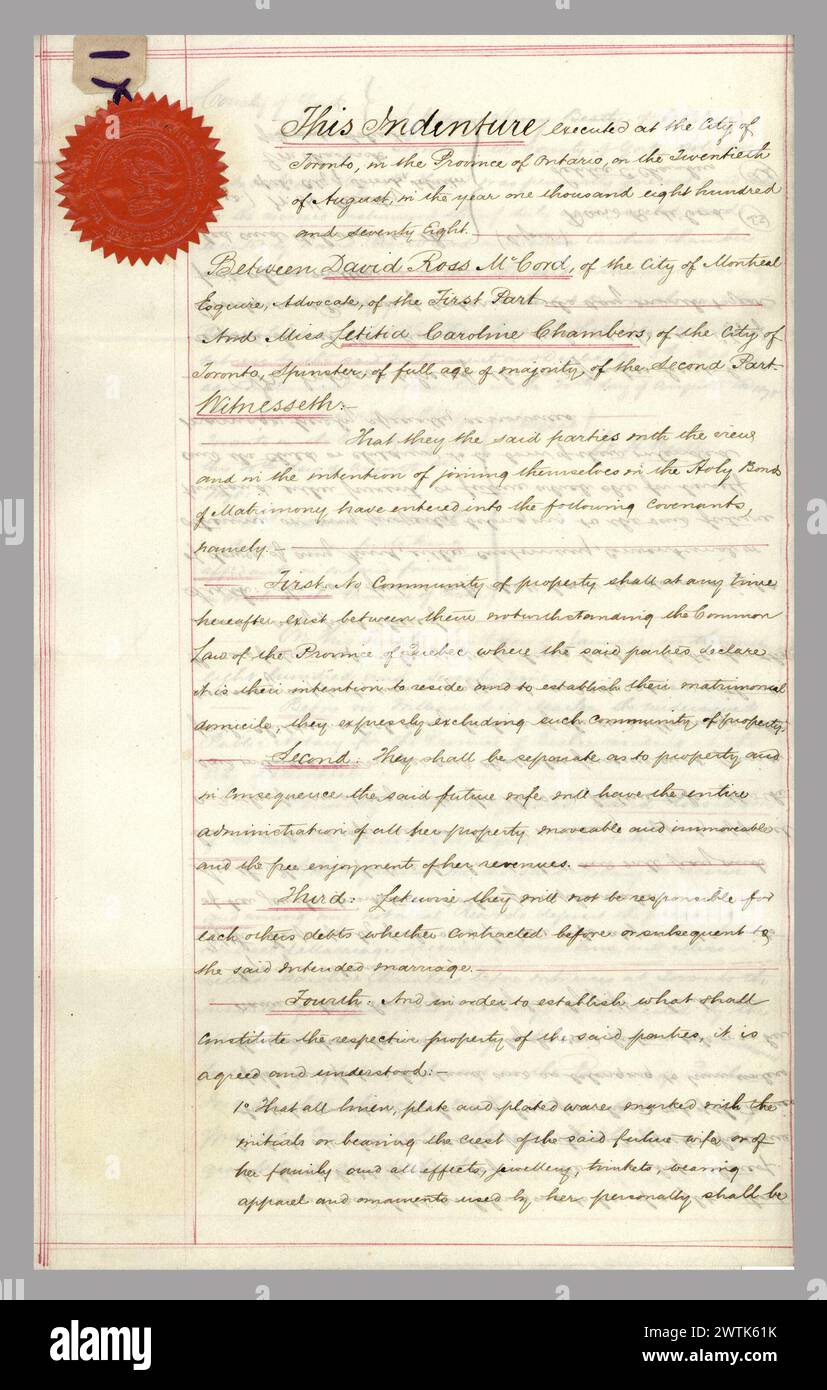 This Indenture executed at the City of
Toronto, in the Province of Ontario, on the Twentieth
of August, in the year one thousand eight hundred
and seventy Eight.
Between David Ross McCord, of the City of Montreal
Esquire, Advocate, of the First Part
And Miss Letitia Caroline Chambers, of the City of
Toronto, Spinster, of full age of majority, of the Second Part
Witnesseth:-
That they the said parties with the view
and in the intention of joining themselves in the Holy Bonds
of Matrimony have entered into the following Covenants,
namely.-
First. No Community of property shall at any time
hereafter exist between them notwithstanding the Common
Law of the Province of Quebec where the said parties declare
it is their intention to reside and to establish their matrimonial
domicile, they expressly excluding such Community of property.
Second. They shall be separate as to property and
in consequence the said future wife will have the entire
administration of all her property moveable and immoveable
and the free enjoyment of her revenues.
Third: Likewise they will not be responsible for
each others debts whether contracted before or subsequent to
the said intended marriage.
Fourth. And in order to establish what shall
Constitute the respective property of the said parties, it is
agreed and understood:-
1o That all linen, plate and plated ware marked with the
initials or bearing the crest of the said future wife or of
her family and all effects, jewellery, trinkets, wearing
apparel and ornaments used by her personally shall be
alamy
Image ID: 2WTK61K
www.alamy.com